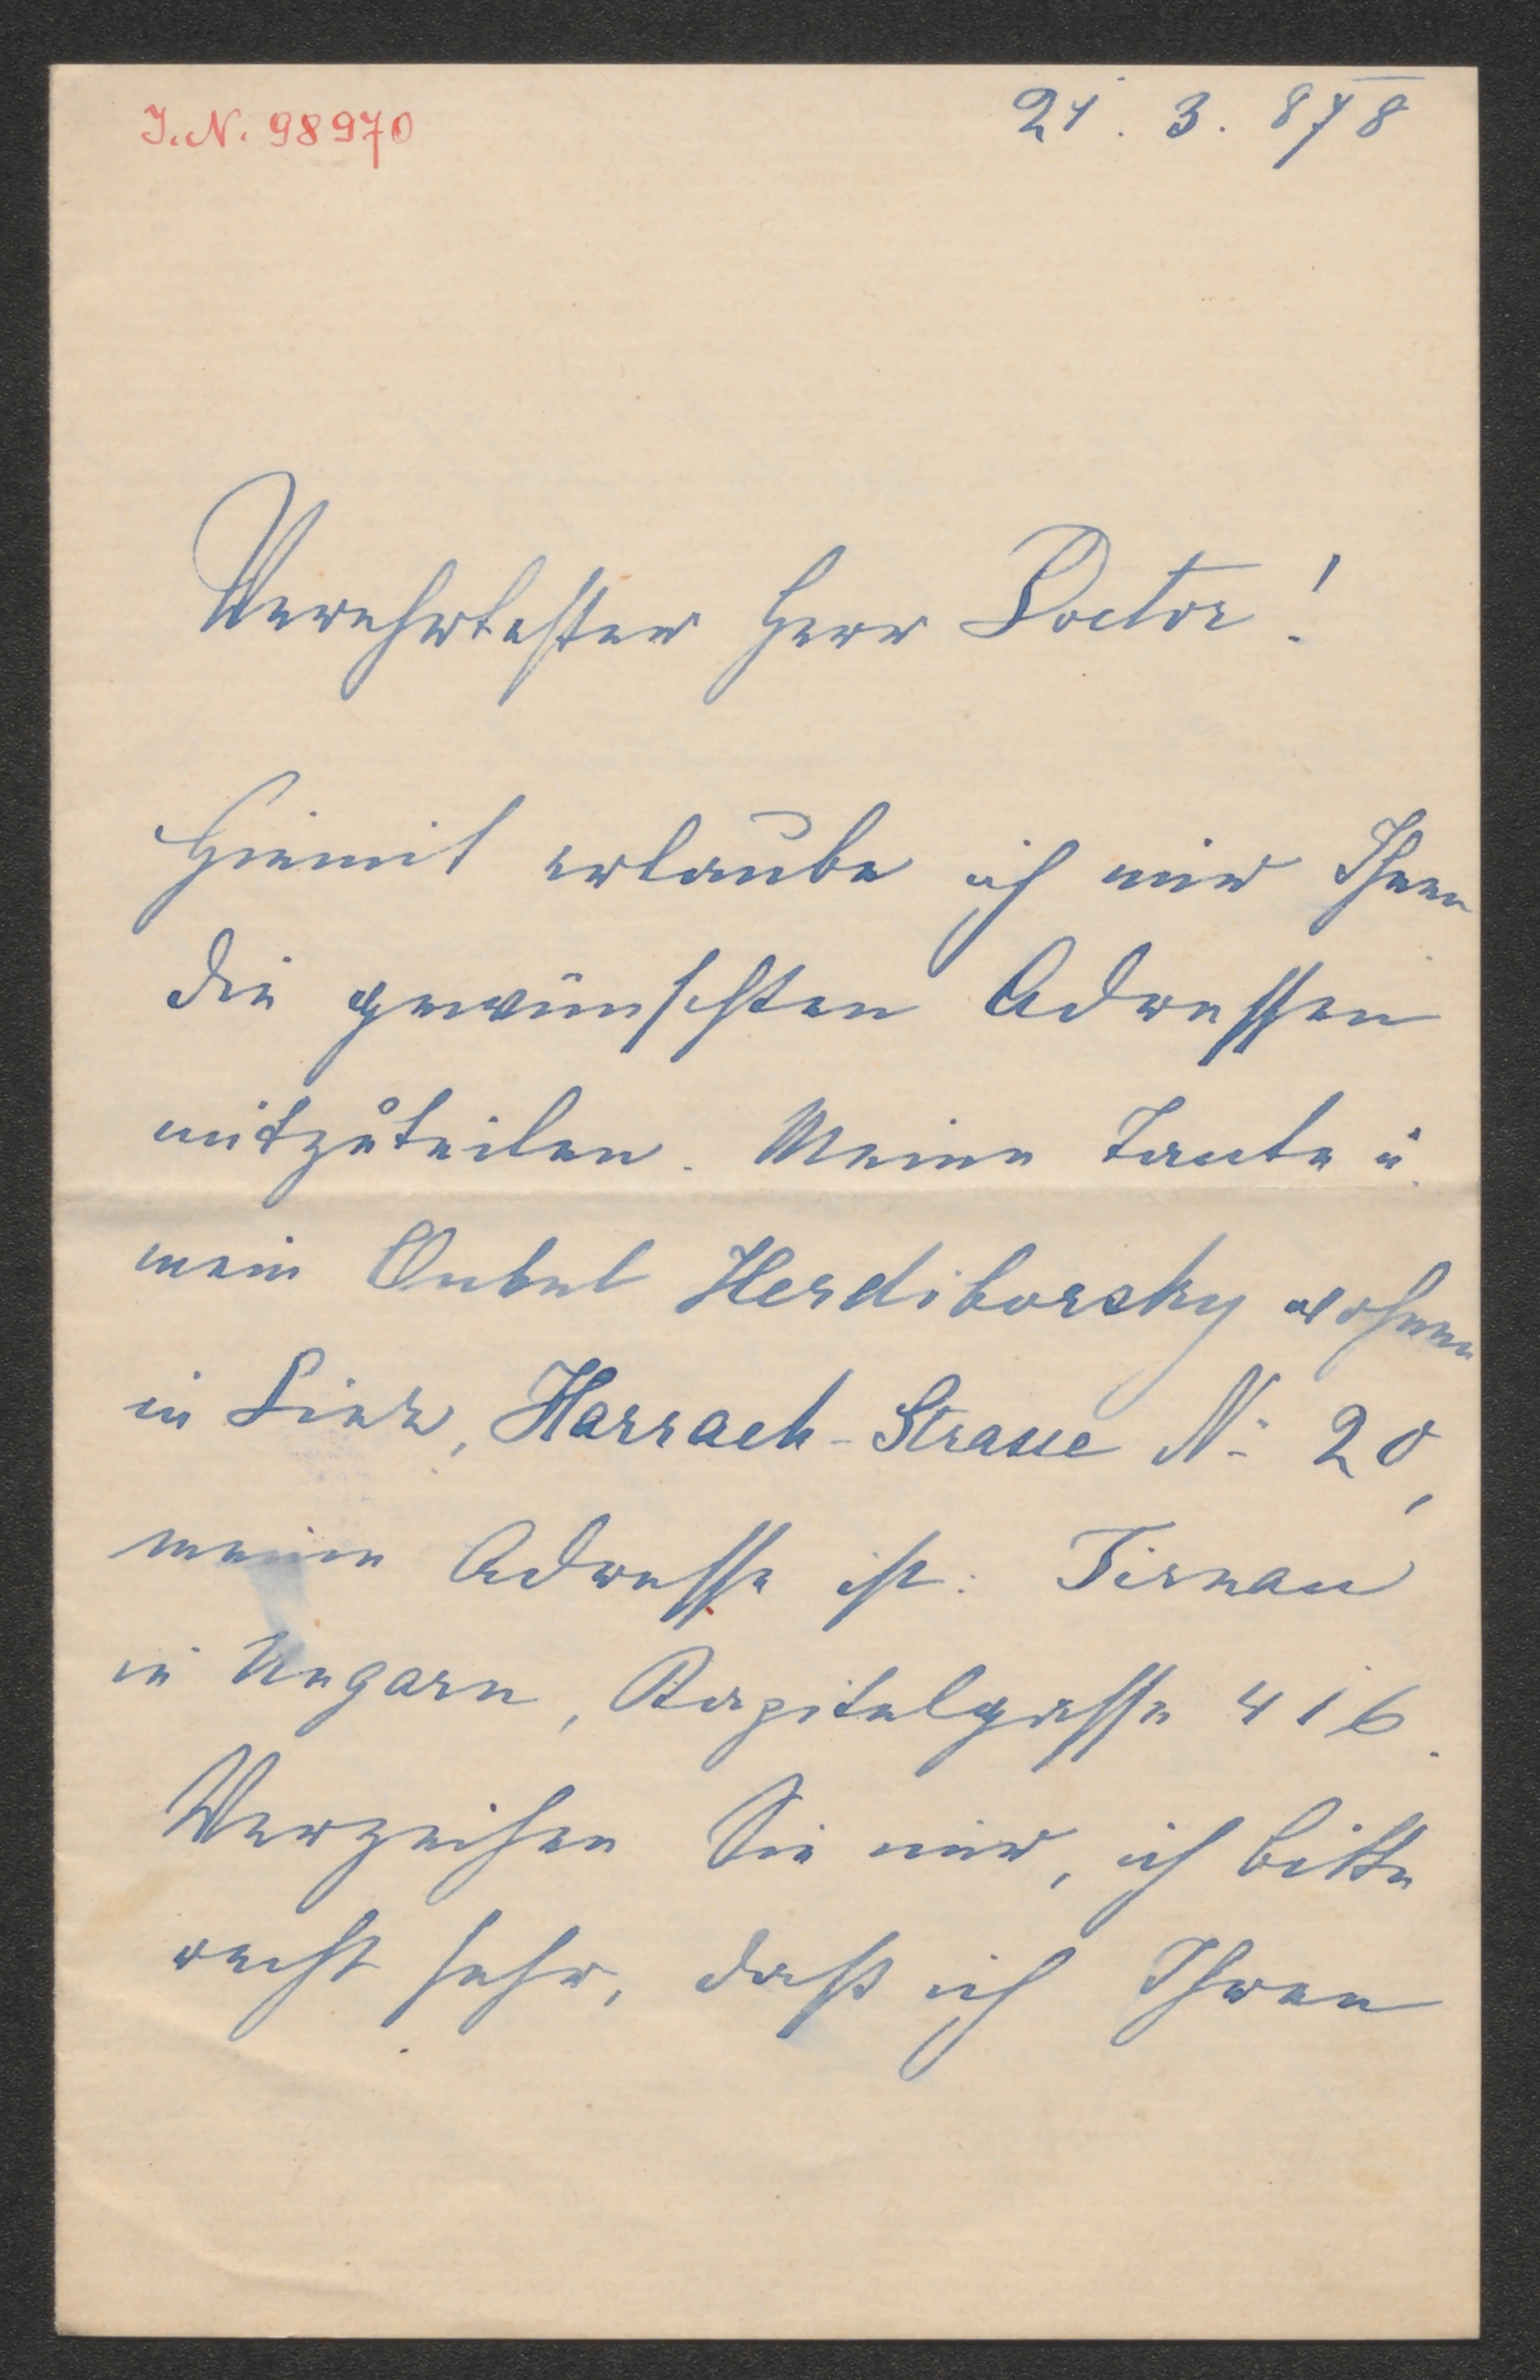 I.N. 98970
21. 3. 878
Verehrtester Herr Doctor!
Hiemit erlaube ich mir Ihnen
die gewünschten Adressen
mitzuteilen. Meine Tante u.
mein Onkel Herdiborsky wohnen
in Linz, Harrach-Strasse No 20,
meine Adresse ist: Tirnau
in Ungarn, Kapitelgasse 416.
Verzeihen Sie mir, ich bitte
recht sehr, daß ich Ihren